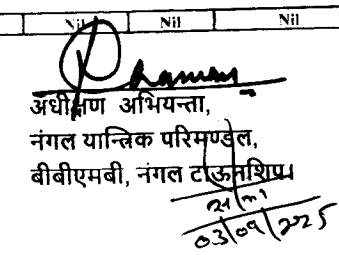 Nil Nil Nil
अधीक्षण अभियन्ता,
नंगल यान्त्रिक परिमण्डल,
बीबीएमबी, नंगल टाऊनशिप।
03/09/2025